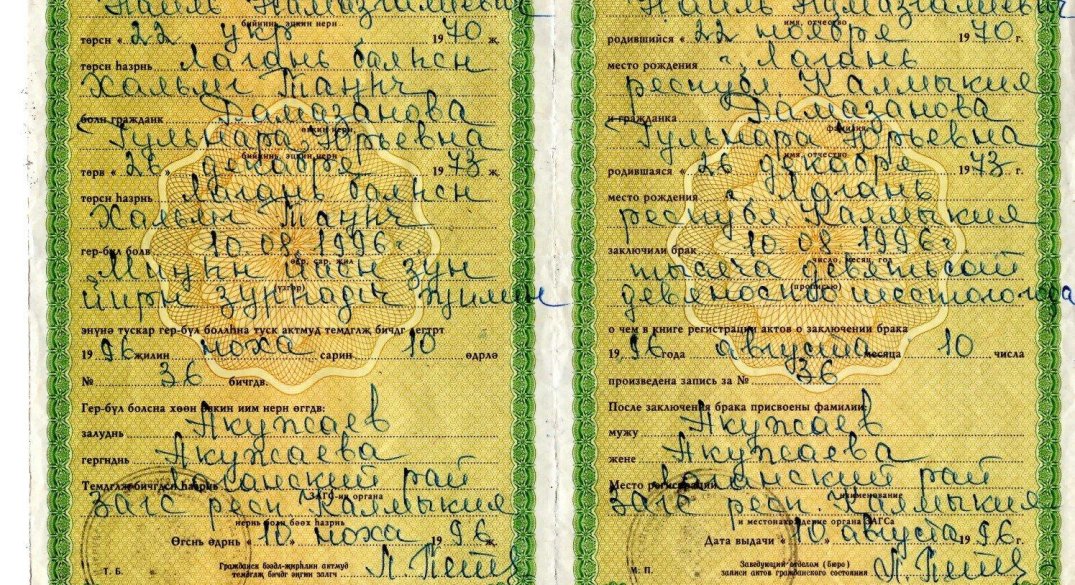 Наиль Намазгалиевич
бийиннь, эцкин нерн
төрсн « 22 укр 1970 ж.
төрсн һазрнь Лагань балһсн
Хальмг Таңһч
болн гражданк Рамазанова
өвкин нерн
Гульнара Юрьевна
бийиннь, эцкин нерн
төрв « 26 » декабря 1973 ж.
төрсн һазрнь Лагань балһсн
Хальмг Таңһч
гер-бүл болв 10.08.1996 г
өдр, сар, җил
Миңһн йисн зун
(үзгәр)
йирн зурһадгч җилин
энүнә тускар гер-бүл боллһна туск актмуд темдглҗ бичдг дегтрт
1996 җилин ноха сарин 10 өдрлә
№ 36 бичгдв.
Гер-бүл болсна хөөн өвкин иим нерн өггдв:
залуднь Акужаев
гергнднь Акужаева
Темдглҗ бичгдсн һазрнь Лаганский рай
ЗАГС-ин органа
ЗАГС респ. Калмыкия
нернь болн бәәх һазрнь
Өгсн өдрнь « 10. ноха 1996 ж.
Т. Б.
Гражданск бәәдл-җирһлин актмуд
темдглҗ бичдг өңгин залгч
Наиль Намазгалиевич
имя, отчество
родившийся « 22 ноября 1970 г.
место рождения г. Лагань
республ. Калмыкия
и гражданка Рамазанова
фамилия
Гульнара Юрьевна
имя, отчество
родившаяся « 26 декабря 1973 г.
место рождения г. Лагань
республ. Калмыкия
заключили брак 10.08.1996 г
число, месяц, год
тысяча девятьсот
(прописью)
девяносто шестого года
о чем в книге регистрации актов о заключении брака
1996 года августа месяца 10 числа
произведена запись за № 36
После заключения брака присвоены фамилии:
мужу Акужаев
жене Акужаева
Место регистрации Лаганский рай
наименование
ЗАГС респ. Калмыкия
и местонахождение органа ЗАГСа
Дата выдачи « 10 августа 1996 г.
М. П.
Заведующий отделом (бюро)
записи актов гражданского состояния